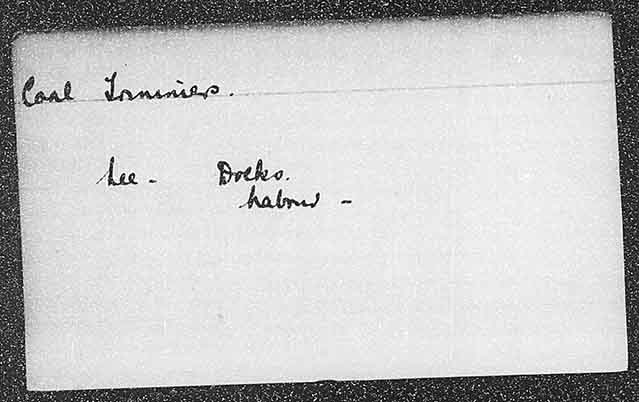 Coal Trimmers.
See - Docks.
Labour -